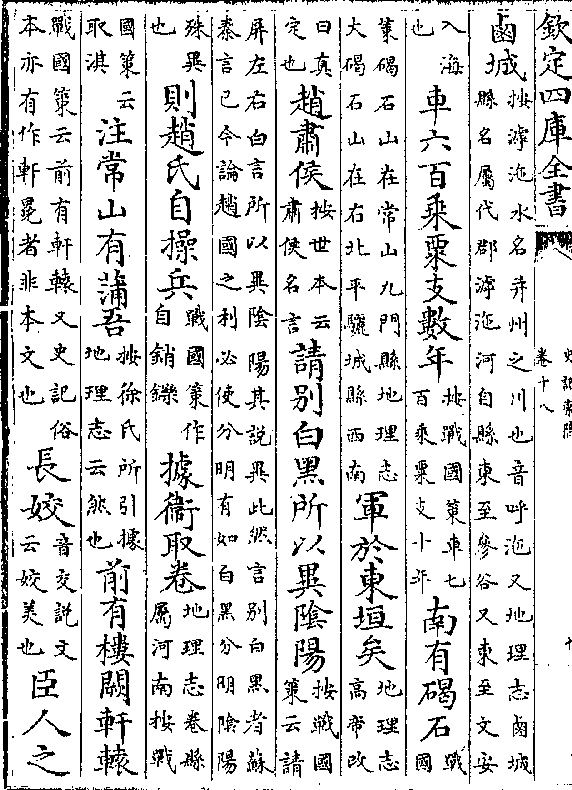 欽定四庫全書
史記索隱
卷十八
十
鹵城按滹沲水名并州之川也音呼沲又地理志鹵城縣名屬代郡滹沲河自縣東至參谷又東至文安
入海也車六百乘粟支數年按戰國策車七百乘粟支十年南有碣石戰國
策碣石山在常山九門縣地理志大碣石山在右北平驪城縣西南軍於東垣矣地理志高帝改
曰真定也趙肅侯按世本云肅侯名言請别白黑所以異陰陽按戰國策云請
屏左右白言所以異陰陽其説異此然言别白黑者蘇秦言已今論趙國之利必使分明有如白黑分明陰陽
殊異也則趙氏自操兵戰國策作自銷鑠據衞取卷地理志卷縣屬河南按戰
國策云取淇注常山有蒲吾按徐氏所引據地理志云然也前有樓闕軒轅
戰國策云前有軒轅又史記俗本亦有作軒冕者非本文也長姣音交説文云姣美也臣人之